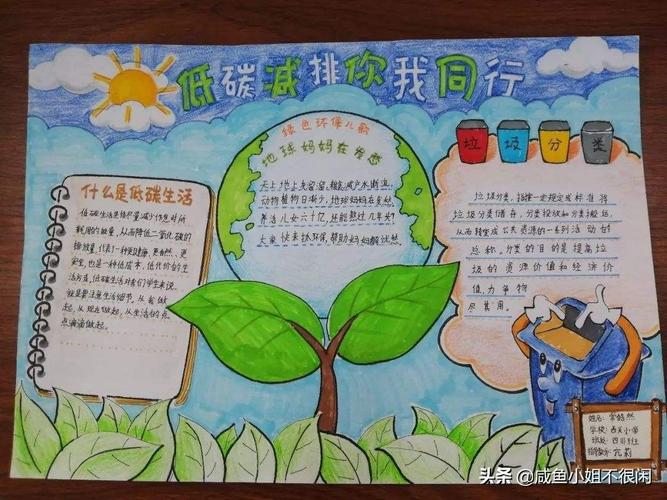 低碳减排你我同行
什么是低碳生活
低碳生活是指尽量减少作息时所
耗用的能量,从而降低二氧化碳的
排放量,代表了一种更健康、更自然、更
安全,也是一种低成本、低代价的生
活方式,低碳生活对我们学生来说,
就是要注意生活细节,从我做
起,从现在做起,从生活的点
点滴滴做起。
绿色环保儿歌
地球妈妈在发愁
天上地上臭溜溜,粮食减产水断流。
动物植物日渐少,地球妈妈在发愁。
养活儿女六十亿,还能熬过几年头?
大家快来抓环保,帮助妈妈解忧愁。
垃圾分类
垃圾分类,指按一定规定或标准将
垃圾分类储存,分类投放和分类搬运,
从而转变成公共资源的一系列活动的
总称。分类的目的是提高垃
圾的资源价值和经济价
值,力争物
尽其用。
姓名:
学校:西关小学
班级:四班
指导教师:
头条 @咸鱼小姐不很闲